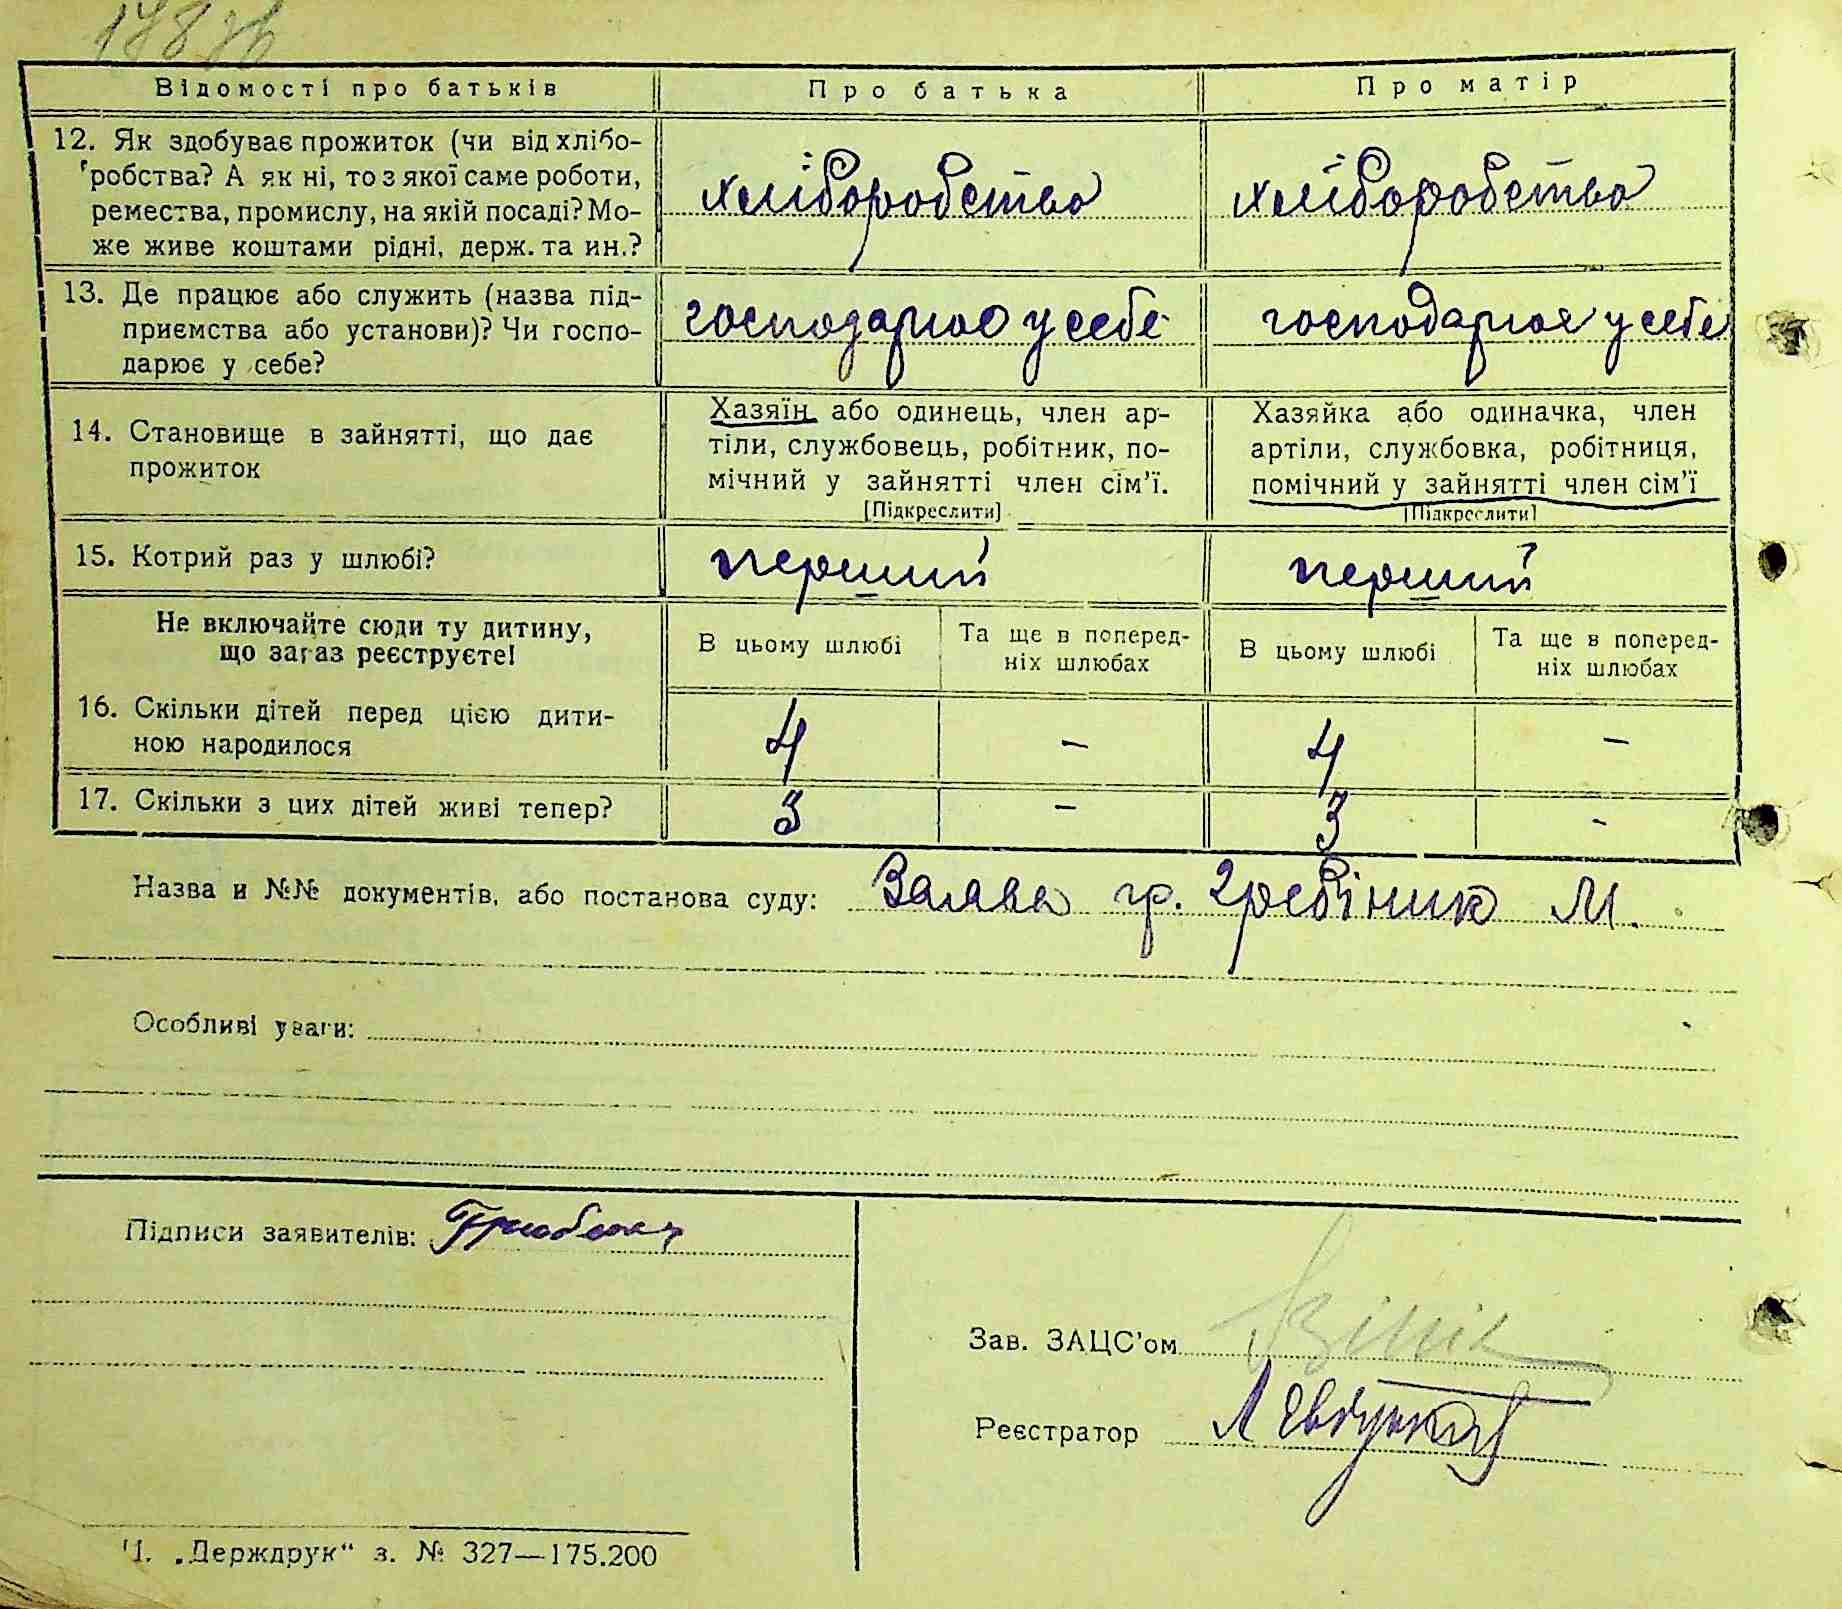 Відомості про батьків Про батька Про матір
12. Як здобуває прожиток (чи від хлібо-
робства? А як ні, то з якої саме роботи,
ремества, промислу, на якій посаді? Мо-
же живе коштами рідні, держ. та ин.?
хліборобство хліборобство
13. Де працює або служить (назва під-
приємства або установи)? Чи госпо-
дарює у себе?
господарює у себе господарює у себе
14. Становище в зайнятті, що дає
прожиток
Хазяїн або одинець, член ар-
тіли, службовець, робітник, по-
мічний у зайнятті член сім'ї.
[Підкреслити]
Хазяйка або одиначка, член
артіли, службовка, робітниця,
помічний у зайнятті член сім'ї
[Підкреслити]
15. Котрий раз у шлюбі? перший перший
Не включайте сюди ту дитину,
що зараз реєструєте!
В цьому шлюбі Та ще в поперед-
ніх шлюбах
В цьому шлюбі Та ще в поперед-
ніх шлюбах
16. Скільки дітей перед цією дити-
ною народилося
4 – 4 –
17. Скільки з цих дітей живі тепер? 3 – 3 -
Назва и №№ документів, або постанова суду: Заява гр. Гребіник М.
Особливі уваги:
Підписи заявителів:
Зав. ЗАЦС'ом
Реєстратор
"Держдрук" з. № 327—175.200